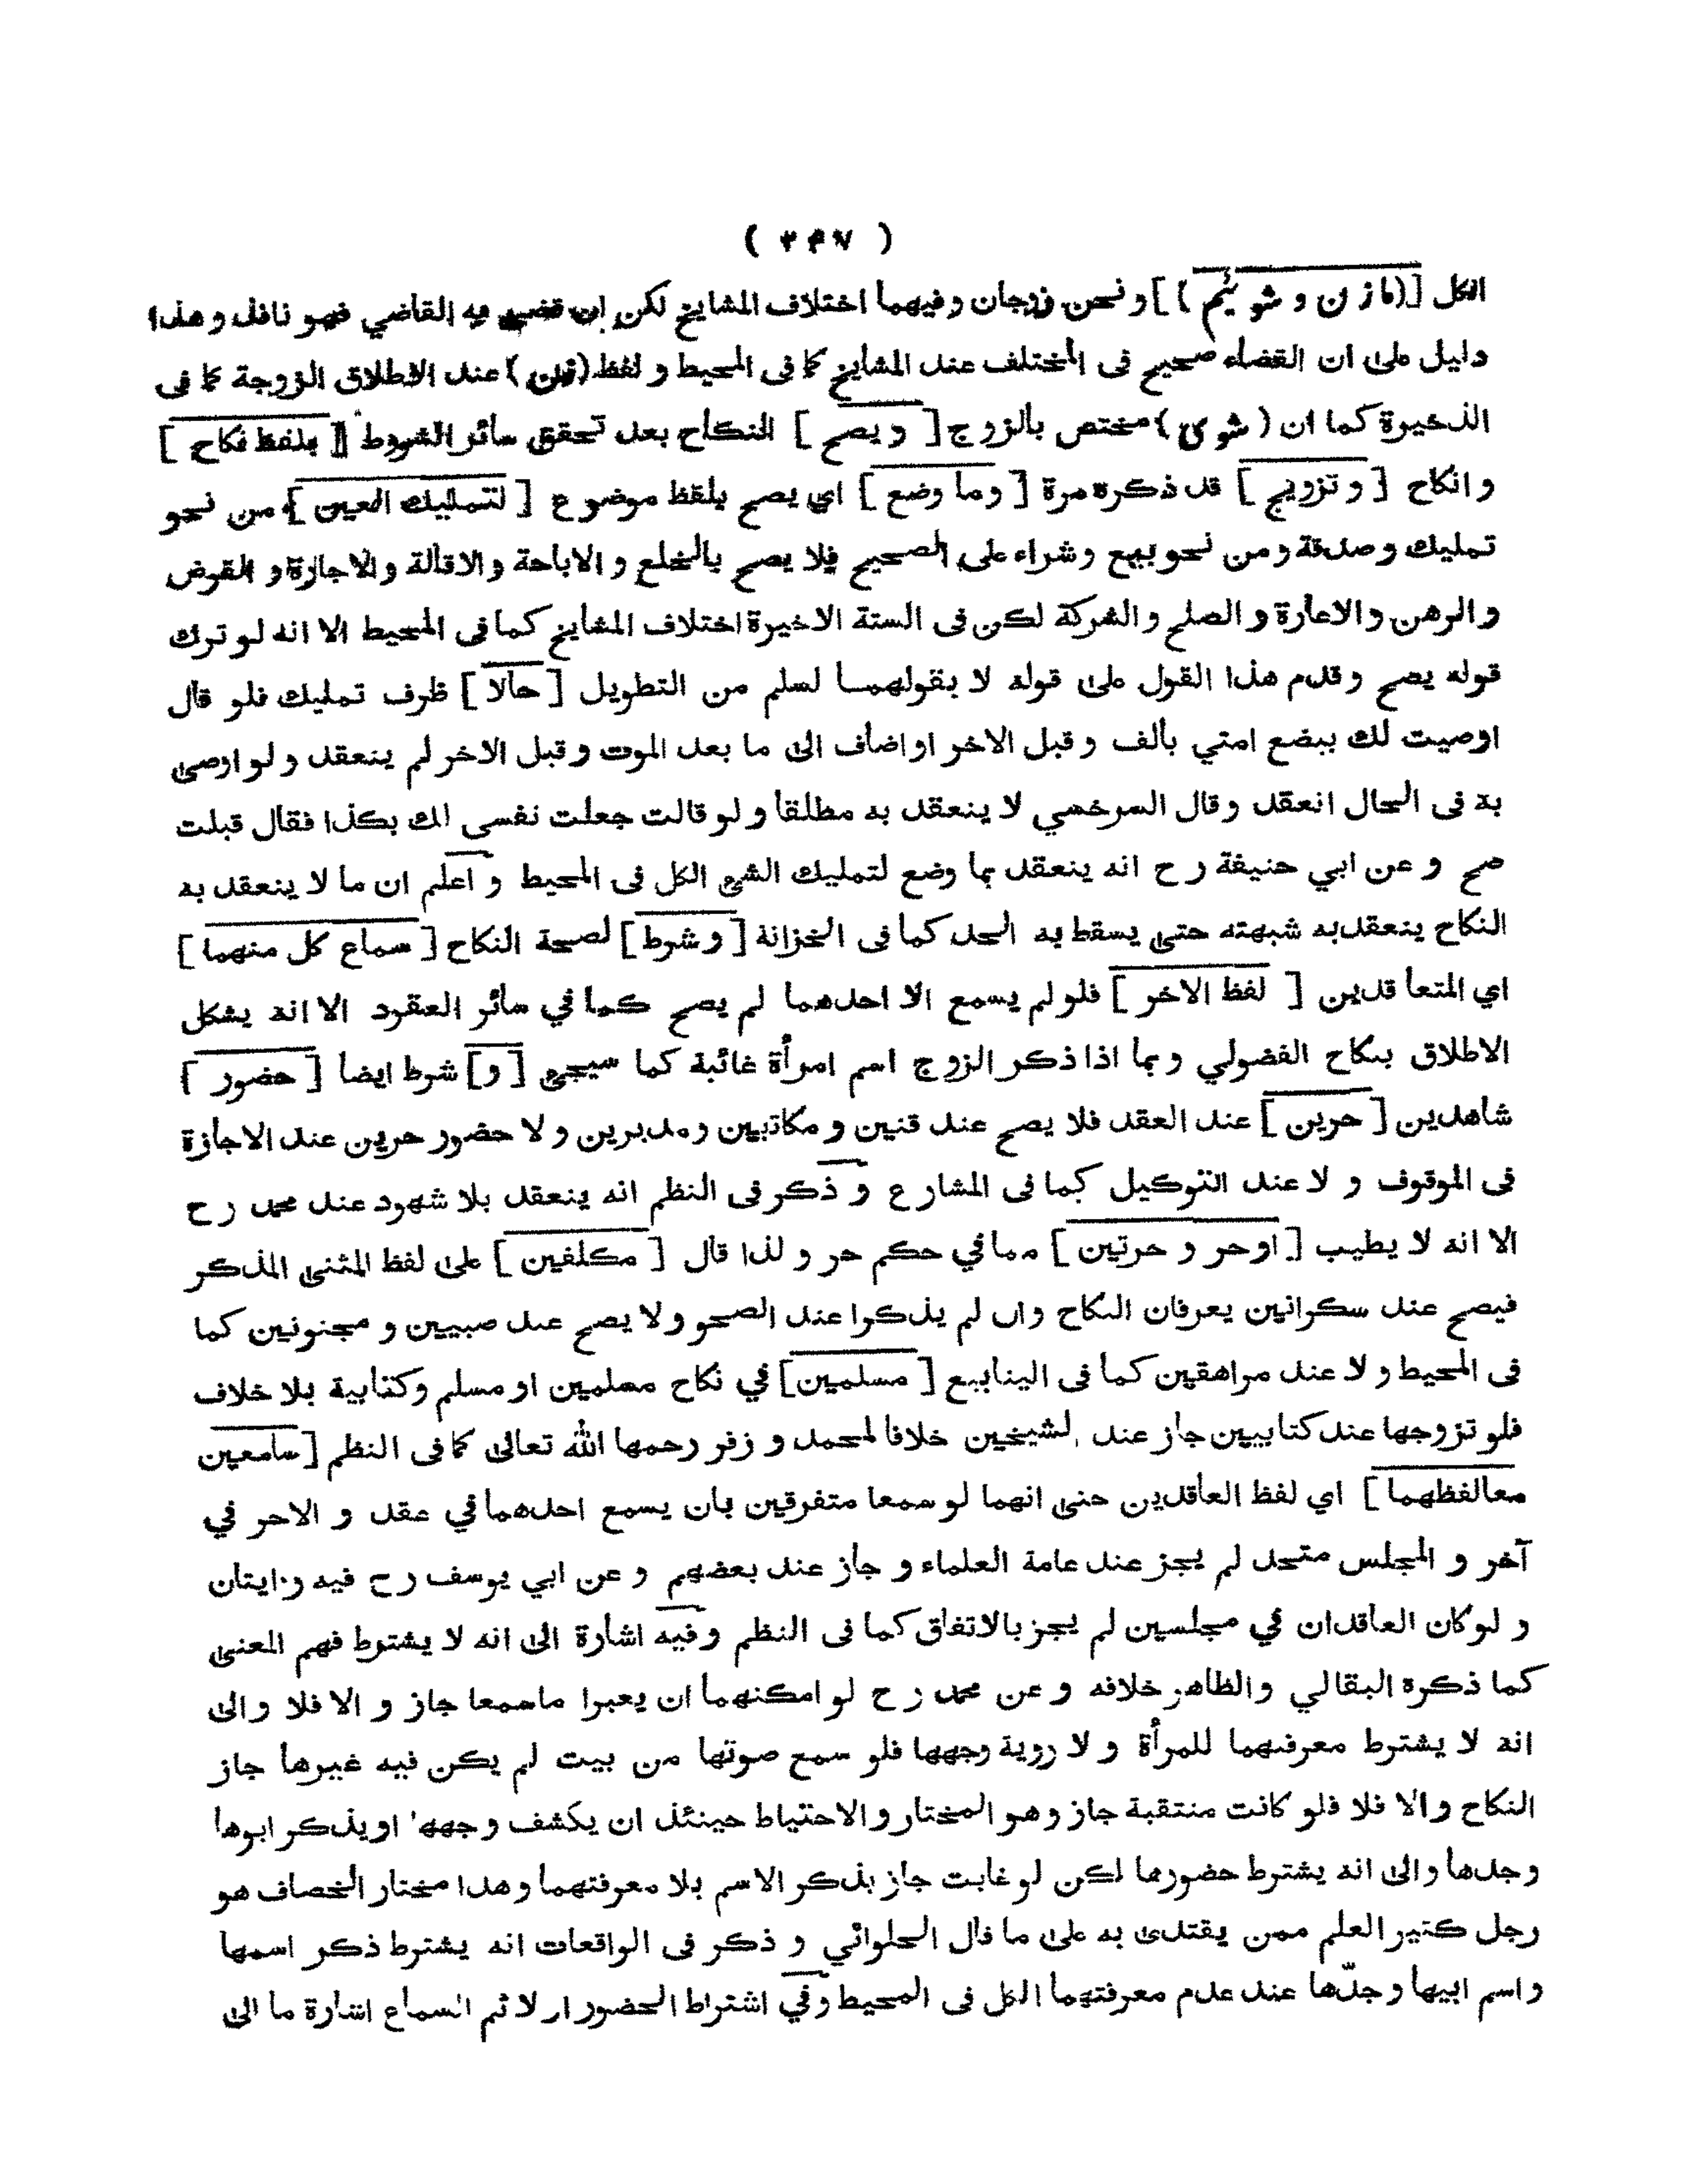 ( ٣٤٧ )
الكل [(ما زن و شوئيم)] و نحن زوجان و فيهما اختلاف المشايخ لكن ان قضى به القاضي فهو نافذ و هذا
دليل على ان القضاء صحيح فى المختلف عند المشايخ كما فى المحيط و لفظ (زن) عند الاطلاق الزوجة كما فى
الذخيرة كما ان (شوى) مختص بالزوج [ويصح] النكاح بعد تحقق سائر الشروط [بلفظ نكاح]
و انكاح [و تزويج] قد ذكره مرة [وما وضع] اي يصح بلفظ موضوع [لتمليك العين] من نحو
تمليك و صدقة و من نحو بيع و شراء على الصحيح فلا يصح بالخلع و الاباحة و الاقالة و الاجازة و القرض
و الرهن و الاعارة و الصلح و الشركة لكن فى الستة الاخيرة اختلاف المشايخ كما فى المحيط الا انه لو ترك
قوله يصح و قدم هذا القول على قوله لا بقولهما لسلم من التطويل [حالا] ظرف تمليك فلو قال
اوصيت لك ببضع امتي بالف و قبل الاخر او اضاف الى ما بعد الموت و قبل الاخر لم ينعقد و لو اوصى
به فى الحال انعقد و قال السرخسي لا ينعقد به مطلقا و لو قالت جعلت نفسى لك بكذا فقال قبلت
صح و عن ابي حنيفة رح انه ينعقد بما وضع لتمليك الشئ الكل فى المحيط و اعلم ان ما لا ينعقد به
النكاح ينعقد به شبهته حتى يسقط به الحد كما فى الخزانة [و شرط] لصحة النكاح [سماع كل منهما]
اي المتعاقدين [لفظ الاخر] فلو لم يسمع الا احدهما لم يصح كما في سائر العقود الا انه يشكل
الاطلاق بنكاح الفضولي و بما اذا ذكر الزوج اسم امرأة غائبة كما سيجئ [و] شرط ايضا [حضور]
شاهدين [حرين] عند العقد فلا يصح عند قنين و مكاتبين و مدبرين و لا حضور حرين عند الاجازة
فى الموقوف و لا عند التوكيل كما فى المشارع و ذكر فى النظم انه ينعقد بلا شهود عند محمد رح
الا انه لا يطيب [او حر و حرتين] مما في حكم حر و لذا قال [مكلفين] على لفظ المثنى المذكر
فيصح عند سكرانين يعرفان النكاح وان لم يذكرا عند الصحو و لا يصح عند صبيين و مجنونين كما
فى المحيط و لا عند مراهقين كما فى الينابيع [مسلمين] في نكاح مسلمين او مسلم وكتابية بلا خلاف
فلو تزوجها عند كتابيين جاز عند الشيخين خلافا لمحمد و زفر رحمها الله تعالى كما فى النظم [سامعين
معا لفظهما] اي لفظ العاقدين حتى انهما لو سمعا متفرقين بان يسمع احدهما في عقد و الاخر في
آخر و المجلس متحد لم يجز عند عامة العلماء و جاز عند بعضهم و عن ابي يوسف رح فيه روايتان
و لو كان العاقدان في مجلسين لم يجز بالاتفاق كما فى النظم و فيه اشارة الى انه لا يشترط فهم المعنى
كما ذكره البقالي و الظاهر خلافه و عن محمد رح لو امكنهما ان يعبرا ما سمعا جاز و الا فلا و الى
انه لا يشترط معرفتهما للمرأة و لا روية وجهها فلو سمع صوتها من بيت لم يكن فيه غيرها جاز
النكاح و الا فلا فلو كانت منتقبة جاز و هو المختار و الاحتياط حينئذ ان يكشف وجهها او يذكر ابوها
و جدها و الى انه يشترط حضورها لكن لو غابت جاز بذكر الاسم بلا معرفتهما و هذا مختار الخصاف هو
رجل كثير العلم ممن يقتدى به على ما قال الحلوائي و ذكر فى الواقعات انه يشترط ذكر اسمها
و اسم ابيها و جدّها عند عدم معرفتهما الكل فى المحيط و في اشتراط الحضور اولا ثم السماع اشارة ما الى